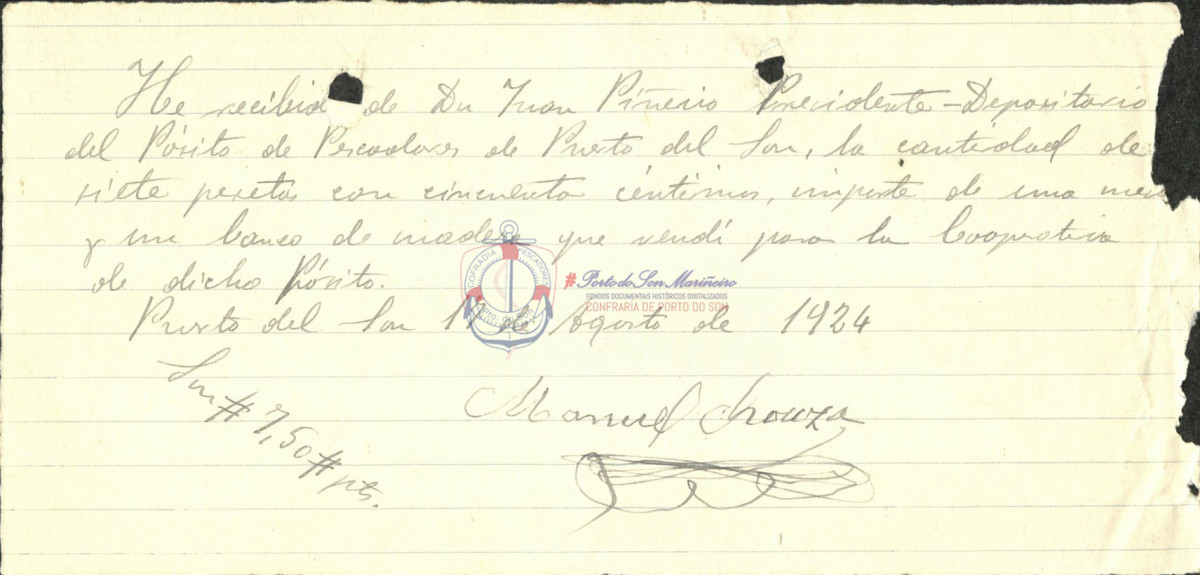 He recibid de Dn Juan Piñeiro Presidente-Depositario
del Pósito de Pescadores de Puerto del Son, la cantidad de
siete pesetas con cincuenta céntimos, importe de una
y un banco de madera que vendí para la Cooperativa
de dicho Pósito.
Puerto del Son de Agosto de 1924
Son # 7,50 # pts.
Manuel
COFRADIA PESCADORES
#Porto do Son Mariñeiro
FONDOS DOCUMENTAIS HISTÓRICOS DIXITALIZADOS
CONFRARÍA DE PORTO DO SON